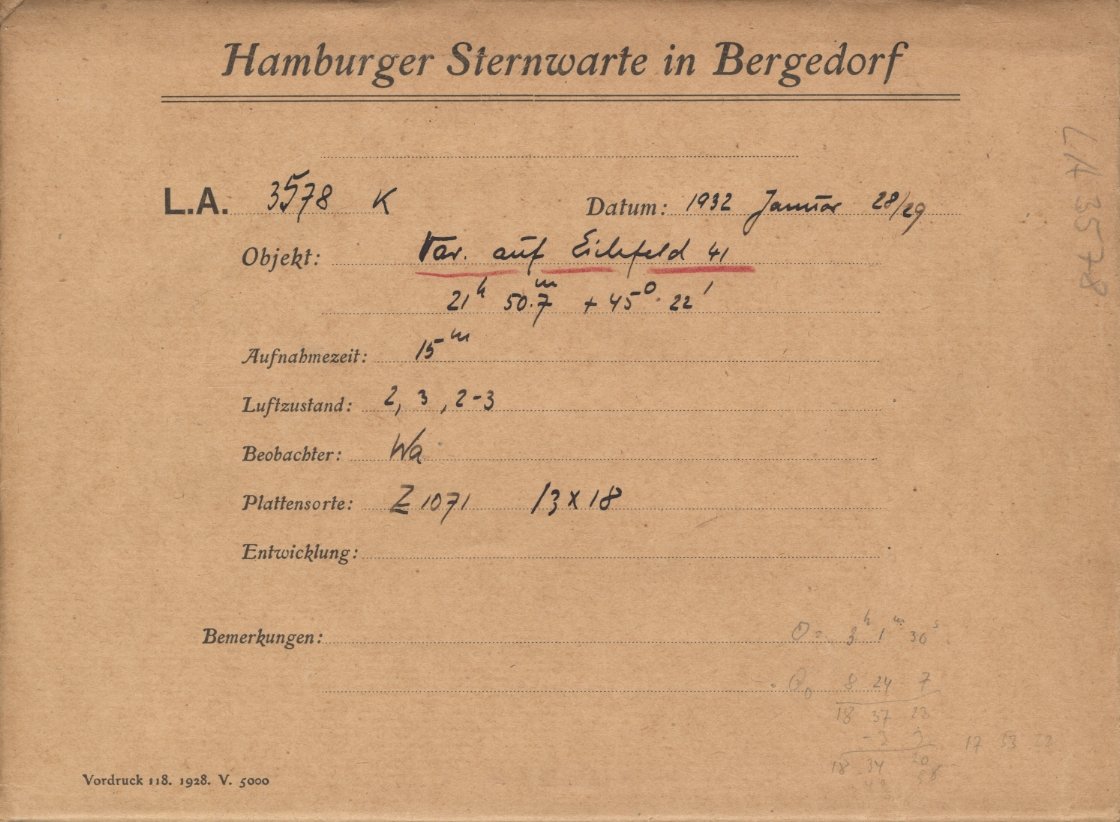 Hamburger Sternwarte in Bergedorf
L.A. 3578 K
Datum: 1932 Januar 28/29
Objekt: Var. auf Eichfeld 41
21h 50.7m + 45° 22'
Aufnahmezeit: 15m
Luftzustand: 2, 3, 2-3
Beobachter: Wa
Plattensorte: Z 1071 13 x 18
Entwicklung:
Bemerkungen:
Θ = 3h 1m 30s
- Θ0 8 24 7
18 37 23
-3 3
17 33 22
18 34 20
Vordruck 118. 1928. V. 5000
LA 3578